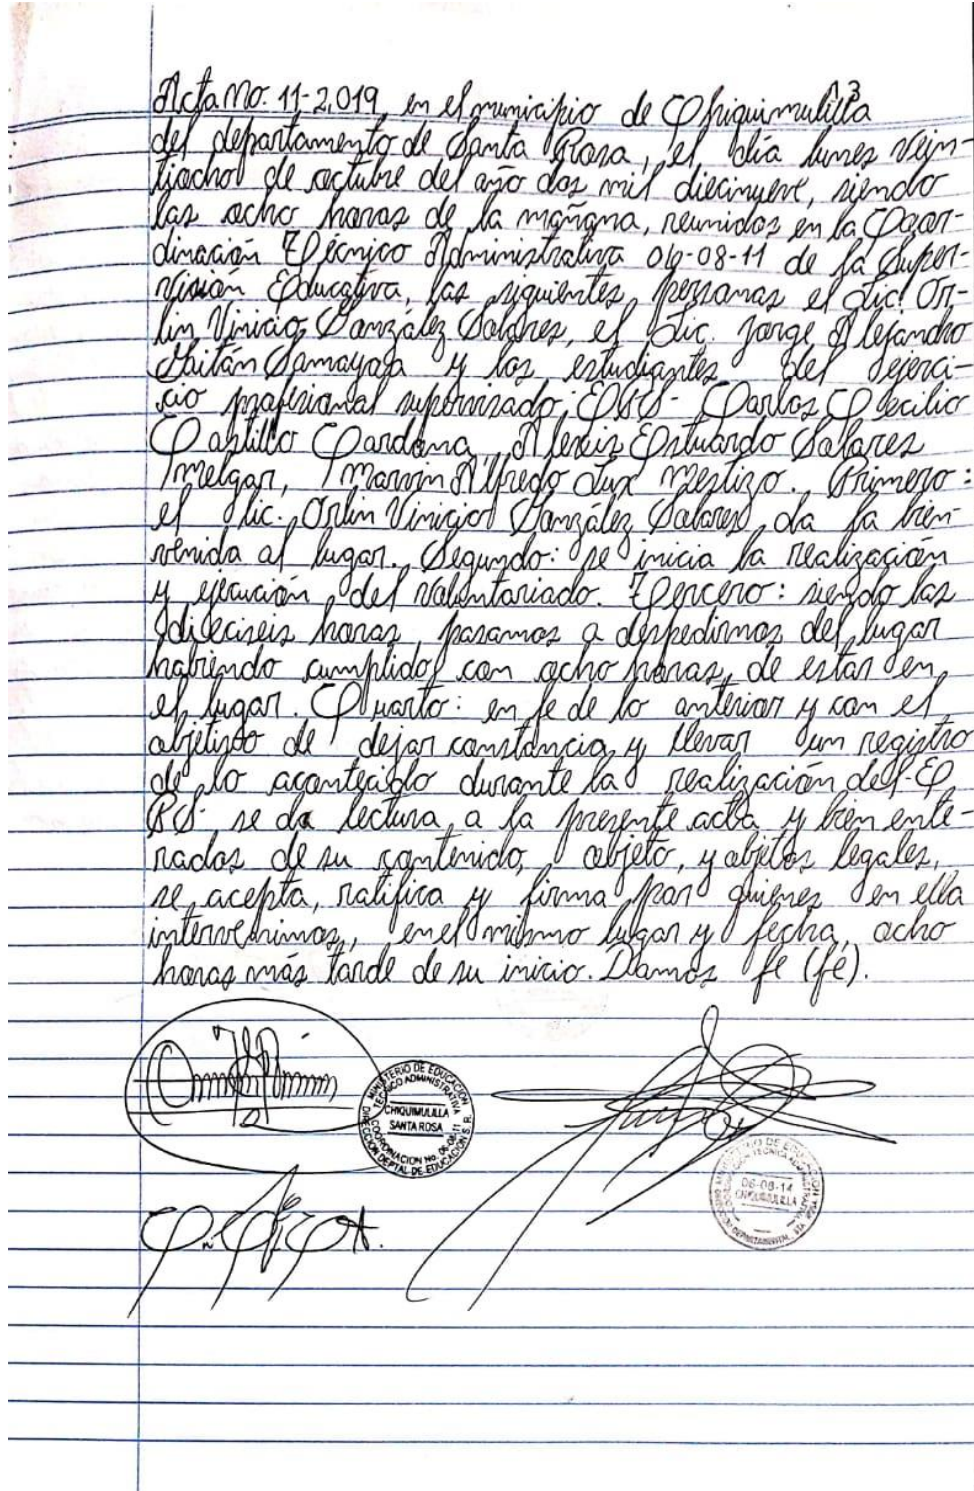 13
Acta No. 11-2,019 en el municipio de Chiquimulilla
del departamento de Santa Rosa, el día lunes vein-
tiocho de octubre del año dos mil diecinueve, siendo
las ocho horas de la mañana, reunidos en la Coor-
dinación Técnico Administrativa 06-08-11 de la Super-
visión Educativa, las siguientes personas el Lic. Or-
lin Vinicio González Solares, el Lic. Jorge Alejandro
Gaitán Samayoa y los estudiantes del ejerci-
cio profesional supervisado -EPS- Carlos Cecilio
Castillo Cardona, Alexis Estuardo Solares
Melgar, Marvin Alfredo Lux Mestizo. Primero:
el Lic. Orlin Vinicio González Solares, da la bien-
venida al lugar. Segundo: se inicia la realización
y ejecución del voluntariado. Tercero: siendo las
dieciseis horas, pasamos a despedirnos del lugar
habiendo cumplido con ocho horas, de estar en
el lugar. Cuarto: en fe de lo anterior y con el
objetivo de dejar constancia y llevar un registro
de lo acontecido durante la realización del -E
PS- se da lectura a la presente acta y bien ente-
rados de su contenido, objeto, y objetos legales,
se acepta, ratifica y firma por quienes en ella
intervenimos, en el mismo lugar y fecha, ocho
horas más tarde de su inicio. Damos fe (fe).
MINISTERIO DE EDUCACION
TECNICO ADMINISTRATIVA
CHIQUIMULILLA
SANTA ROSA
COORDINACION No. 06-08-11
DIRECCION DEPTAL DE EDUCACION S. R.
MINISTERIO DE EDUCACION
06-08-14
CHIQUIMULILLA